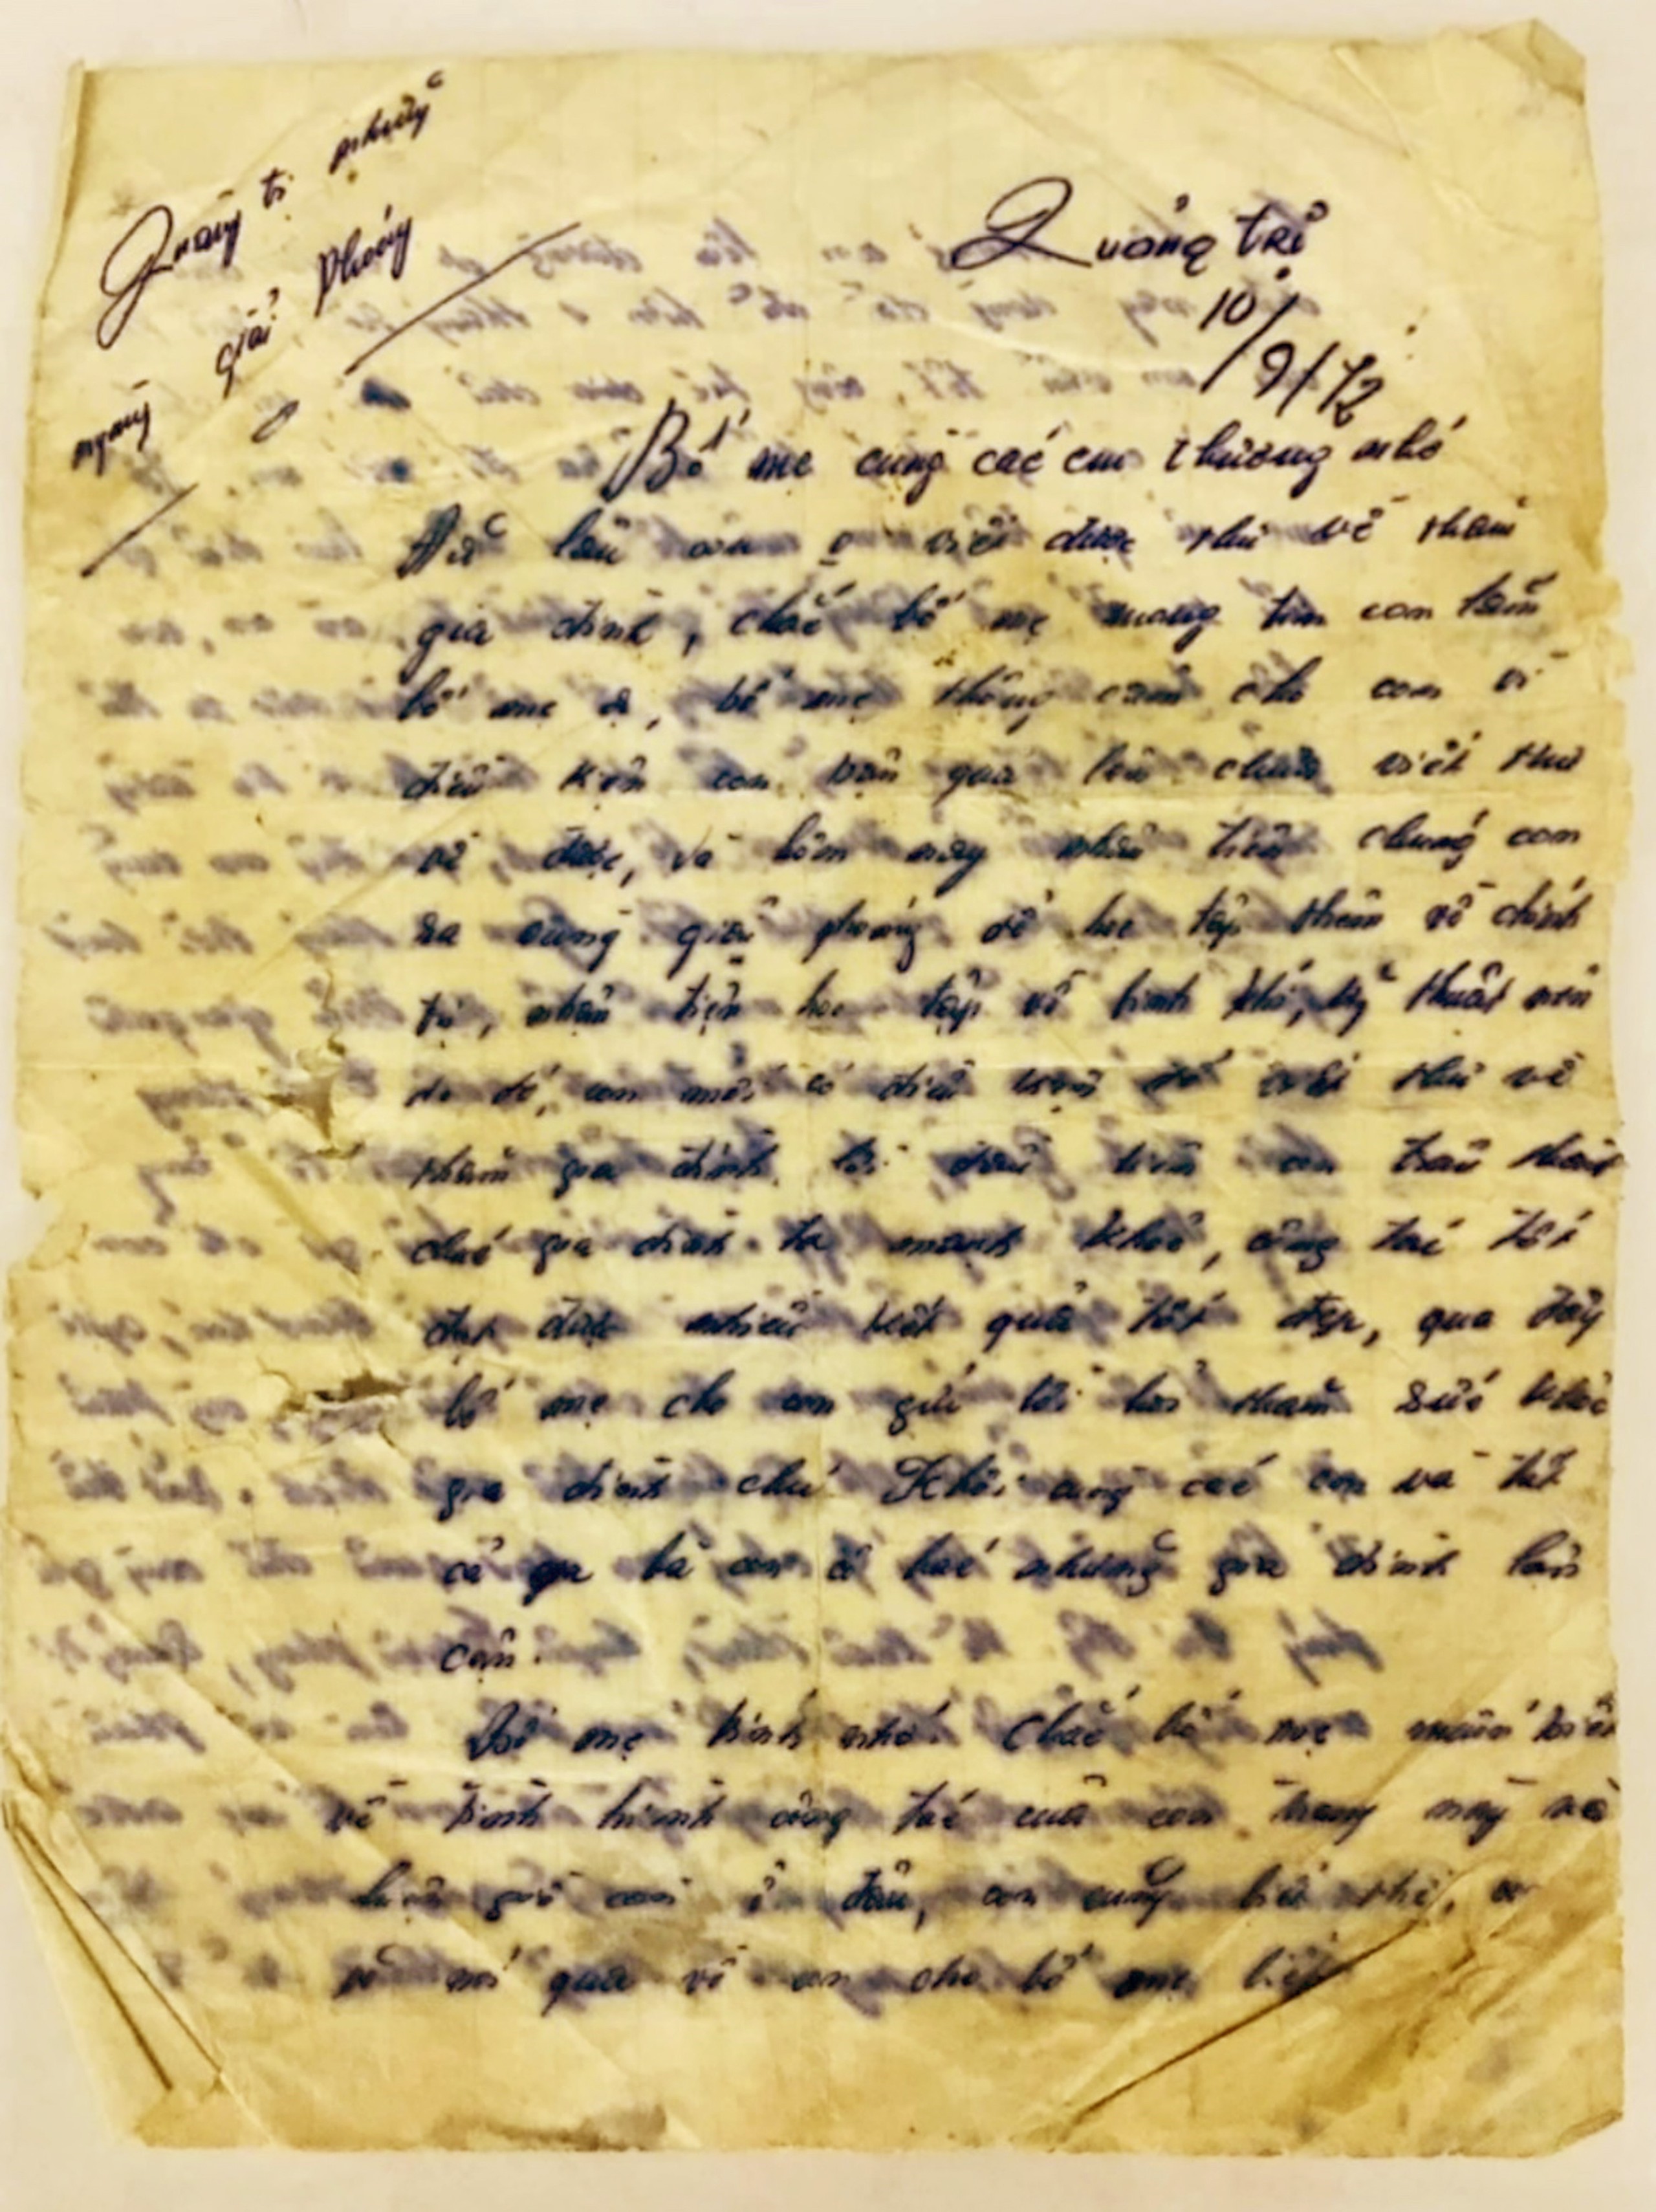 Quảng trị những
ngày giải phóng
Quảng trị
10/9/72
Bố mẹ cùng các em thương nhớ
Đã lâu con viết được thư về thăm
gia đình, chắc bố mẹ mong tin con lắm
bố mẹ ạ, bố mẹ thông cảm cho con vì
điều kiện con bận quá lâu chưa viết thư
về được, và hôm nay nhân tiện chúng con
ra vùng giải phóng để học tập thêm về chính
trị, nhân tiện học tập về binh khí, kỹ thuật nên
do đó, con mới có điều kiện để viết thư về
thăm gia đình, lời đầu tiên con
chúc gia đình ta mạnh khoẻ, công tác tốt
đạt được nhiều kết quả tốt đẹp, qua đây
bố mẹ cho con gửi lời hỏi thăm sức khoẻ
gia đình chú Khôi cùng các em và tất
cả bà con cô bác những gia đình lân
cận.
Bố mẹ kính nhớ! Chắc bố mẹ muốn biết
về tình hình công tác của con trong này và
bây giờ con ở đâu, con cũng biết thế,
nói qua về con cho bố mẹ biết